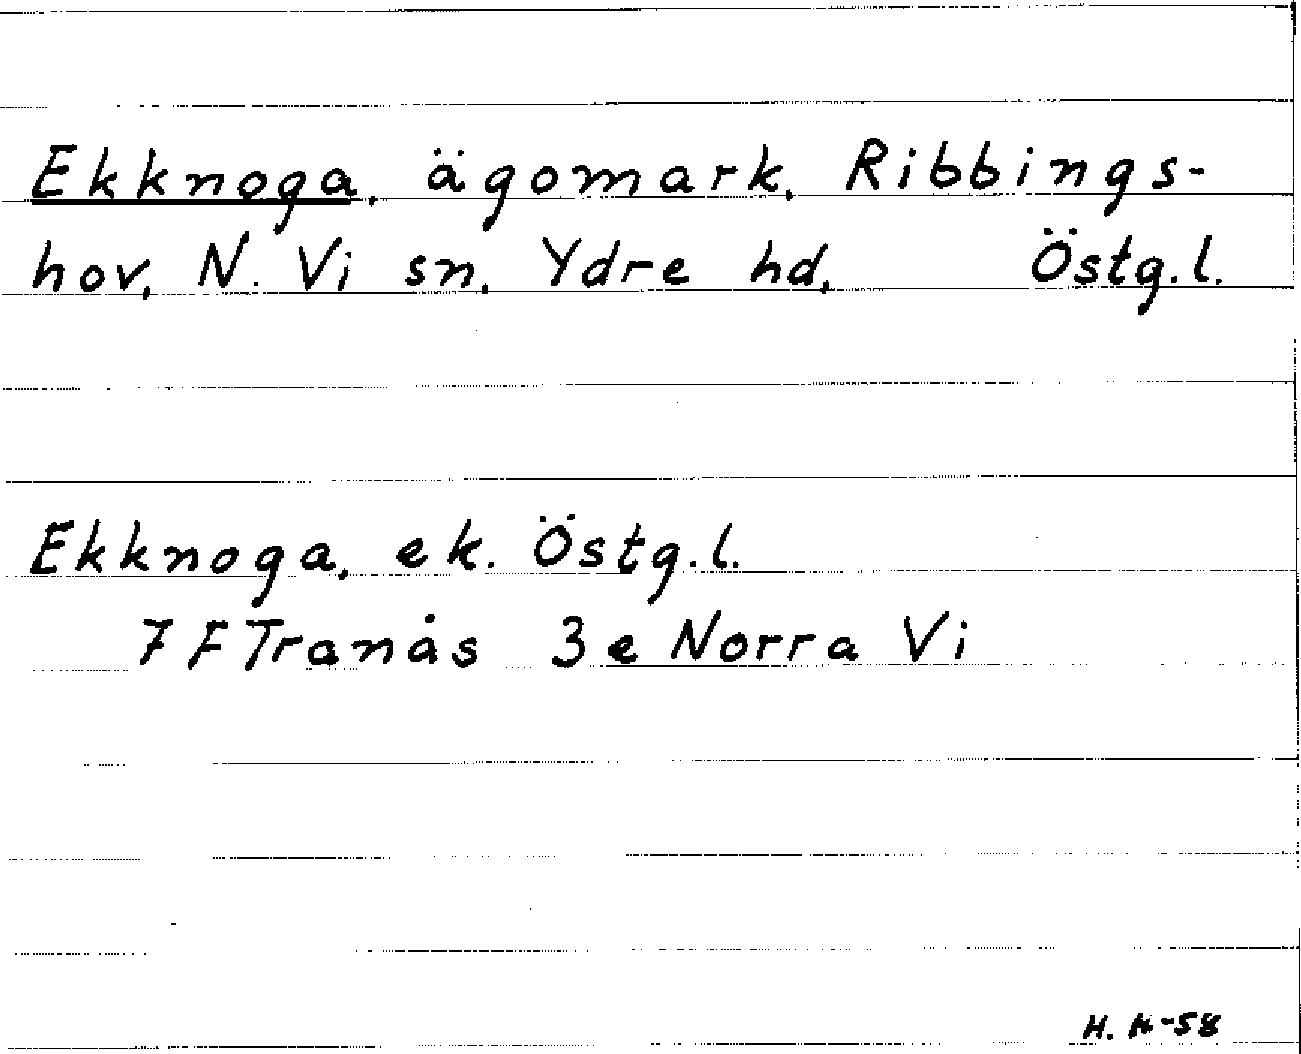 Ekknoga, ägomark, Ribbings-
hov, N. Vi sn, Ydre hd, Östg.l.
Ekknoga, ek. Östg.l.
7 F Tranås 3 e Norra Vi
H. M-58